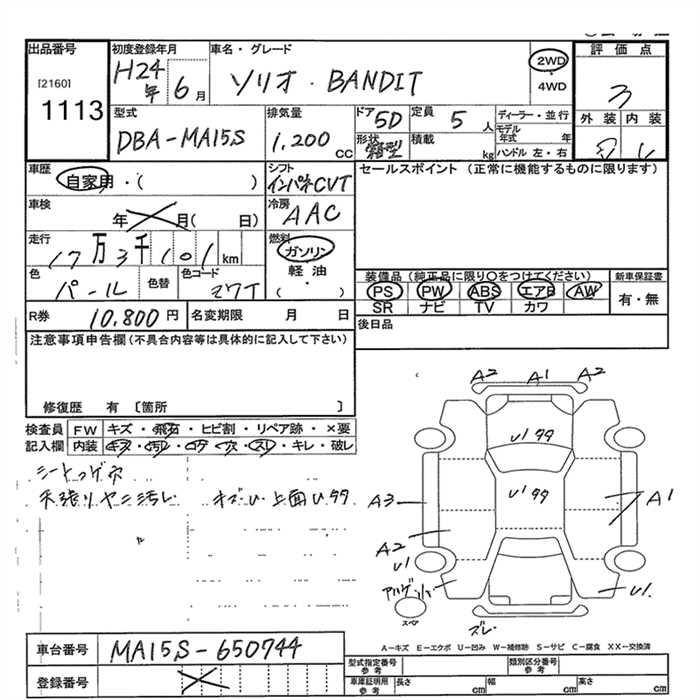 出品番号
[2160]
1113
初度登録年月
H24年 6月
車名・グレード
ソリオ・BANDIT
2WD
・
4WD
評価点
3
外装 内装
型式
DBA-MA15S
排気量
1,200 cc
ドア 5D
形状 箱型
定員 5 人
積載 kg
ディーラー・並行
モデル年式 年
ハンドル 左・右
車歴
自家用・( )
シフト
インパネCVT
セールスポイント (正常に機能するものに限ります)
車検
年 月( 日)
冷房
AAC
走行
17万3千101km
燃料
ガソリン
・
軽油
・
( )
色
パール
色替
色コード
ZWT
装備品(純正品に限り○をつけてください)
PS PW ABS エアB AW
SR ナビ TV カワ
新車保証書
有・無
R券 10,800円
名変期限 月 日
後日品
注意事項申告欄(不具合内容等は具体的に記入して下さい)
修復歴 有 〔箇所 〕
検査員 FW キズ・飛石・ヒビ割・リペア跡・×要
記入欄 内装 キズ・汚レ・コゲ・穴・スレ・キレ・破レ
シートコゲ穴
天張リヤニ汚レ
キズU 上面Uタタ
A2 A1 A2
U1タタ
U1タタ
A3
A1
A2
U1
U1
スペア
ズレ
A-キズ E-エクボ U-凹み W-補修跡 S-サビ C-腐食 XX-交換済
車台番号 MA15S-650744
登録番号
型式指定番号 参考
類別区分番号 参考
車庫証明用 参考
長さ cm 幅 cm 高さ cm